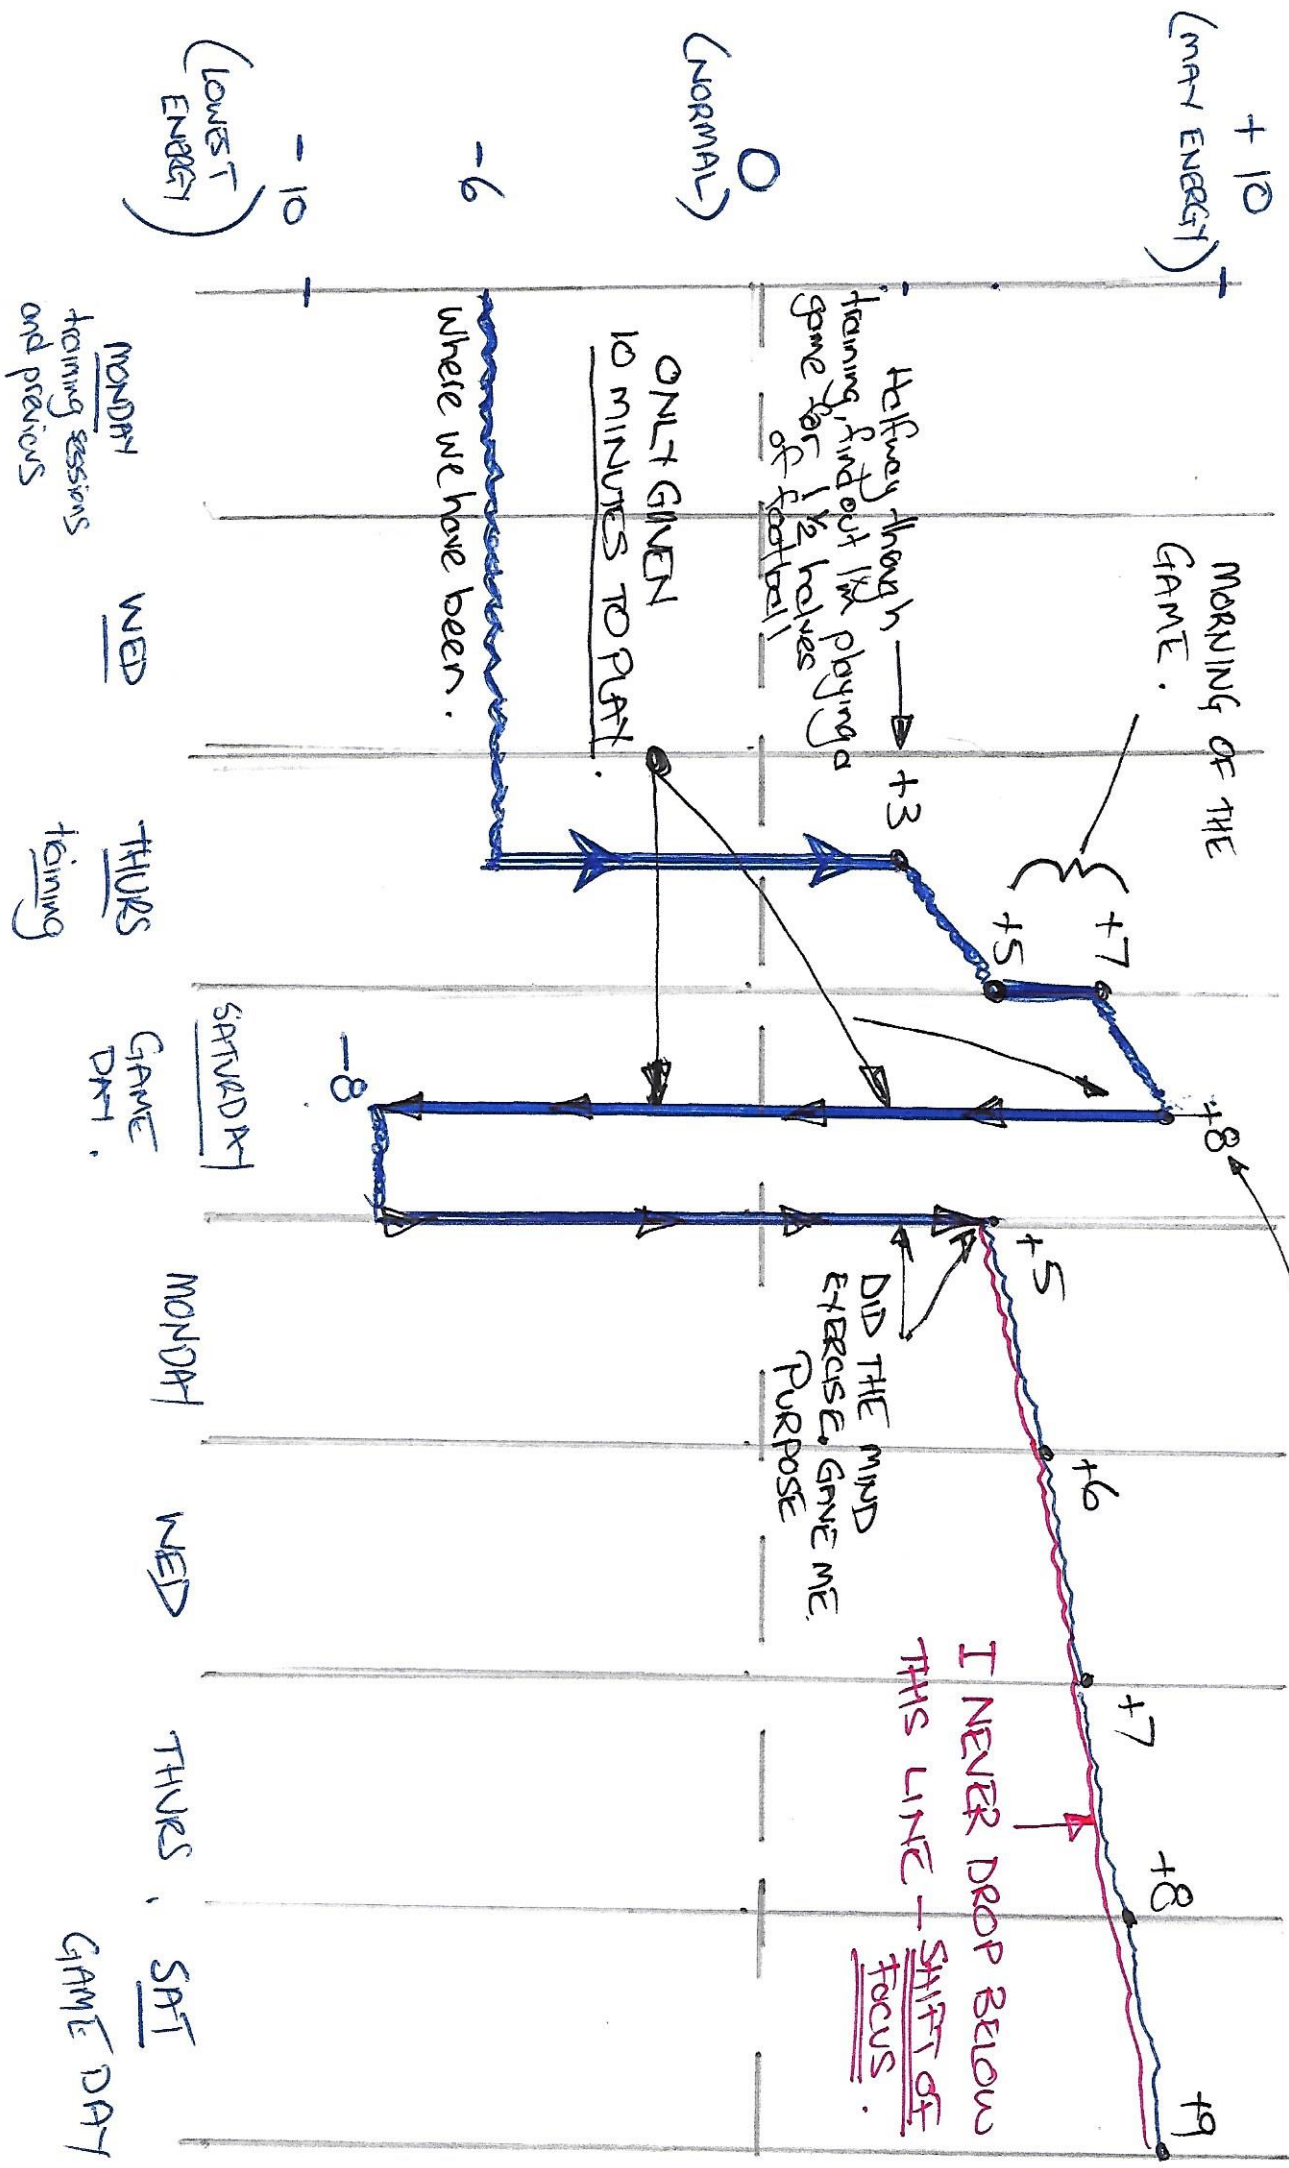 + 10
(MAX ENERGY)
0
(NORMAL)
- 6
- 10
(LOWEST
ENERGY)
MORNING OF THE
GAME.
Halfway through
training, find out I'm playing a
game for 1 1/2 halves
of football
ONLY GIVEN
10 MINUTES TO PLAY.
where we have been.
+3
+5
+7
+8
-8
+5
DID THE MIND
EXERCISE. GAVE ME
PURPOSE
+6
+7
+8
+9
I NEVER DROP BELOW
THIS LINE - SHIFT OF
FOCUS.
MONDAY
training sessions
and previous
WED
THURS
training
SATURDAY
GAME
DAY.
MONDAY
WED
THURS.
SAT
GAME DAY